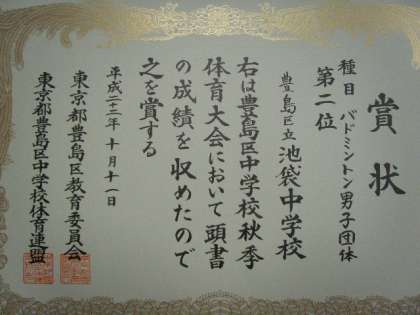 賞状
種目 バドミントン男子団体
第二位
豊島区立 池袋中学校
右は豊島区中学校秋季
体育大会において頭書
の成績を収めたので
之を賞する
平成二十二年 十月十一日
東京都豊島区教育委員会
東京都豊島区中学校体育連盟